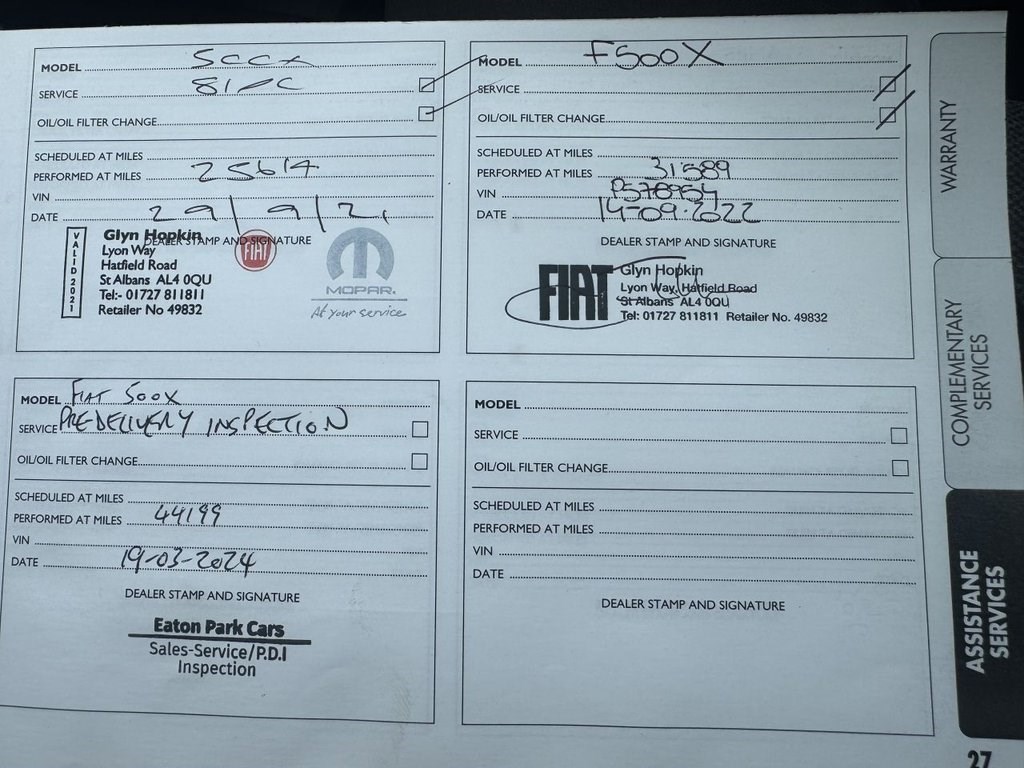 MODEL 500X
SERVICE
OIL/OIL FILTER CHANGE
SCHEDULED AT MILES
PERFORMED AT MILES 25614
VIN
DATE 29/9/21
DEALER STAMP AND SIGNATURE
VALID 2021
Glyn Hopkin
Lyon Way
Hatfield Road
St Albans AL4 0QU
Tel:- 01727 811811
Retailer No 49832
FIAT
MOPAR.
At your service
MODEL F500X
SERVICE
OIL/OIL FILTER CHANGE
SCHEDULED AT MILES
PERFORMED AT MILES 31589
VIN P578954
DATE 14-09-2022
DEALER STAMP AND SIGNATURE
FIAT
Glyn Hopkin
Lyon Way, Hatfield Road
St Albans AL4 0QU
Tel: 01727 811811 Retailer No. 49832
MODEL FIAT 500X
SERVICE PREDELIVERY INSPECTION
OIL/OIL FILTER CHANGE
SCHEDULED AT MILES
PERFORMED AT MILES 44199
VIN
DATE 19-03-2024
DEALER STAMP AND SIGNATURE
Eaton Park Cars
Sales-Service/P.D.I
Inspection
MODEL
SERVICE
OIL/OIL FILTER CHANGE
SCHEDULED AT MILES
PERFORMED AT MILES
VIN
DATE
DEALER STAMP AND SIGNATURE
WARRANTY
COMPLEMENTARY
SERVICES
ASSISTANCE
SERVICES
27